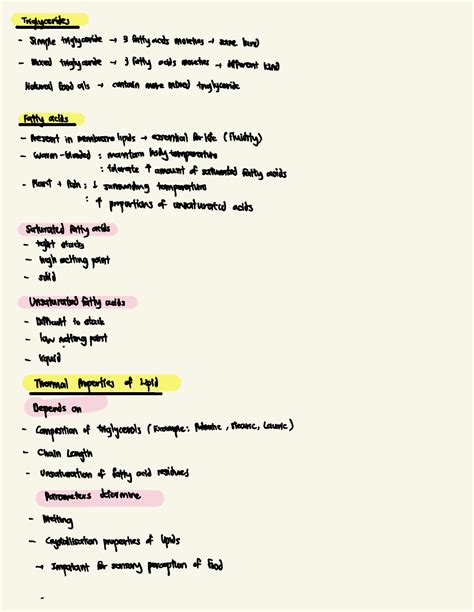 Triglycerides
- Simple triglyceride → 3 fatty acids moieties → same kind
- Mixed triglyceride → 3 fatty acids moieties → different kind
Natural food oils → contain more mixed triglyceride
Fatty acids
- Present in membrane lipids → essential for life (Fluidity)
- Warm-blooded : maintain body temperature
: tolerate ↑ amount of saturated fatty acids
- Plant + Fish : ↓ surrounding temperature
: ↑ proportions of unsaturated acids
Saturated fatty acids
- tight stacks
- high melting point
- solid
Unsaturated fatty acids
- Difficult to stack
- low melting point
- liquid
Thermal Properties of Lipid
Depends on
- Composition of triglycerols (Example: Palmitic, Stearic, Lauric)
- Chain Length
- Unsaturation of fatty acid residues
Parameters determine
- Melting
- Crystallisation properties of lipids
→ Important for sensory perception of food
-